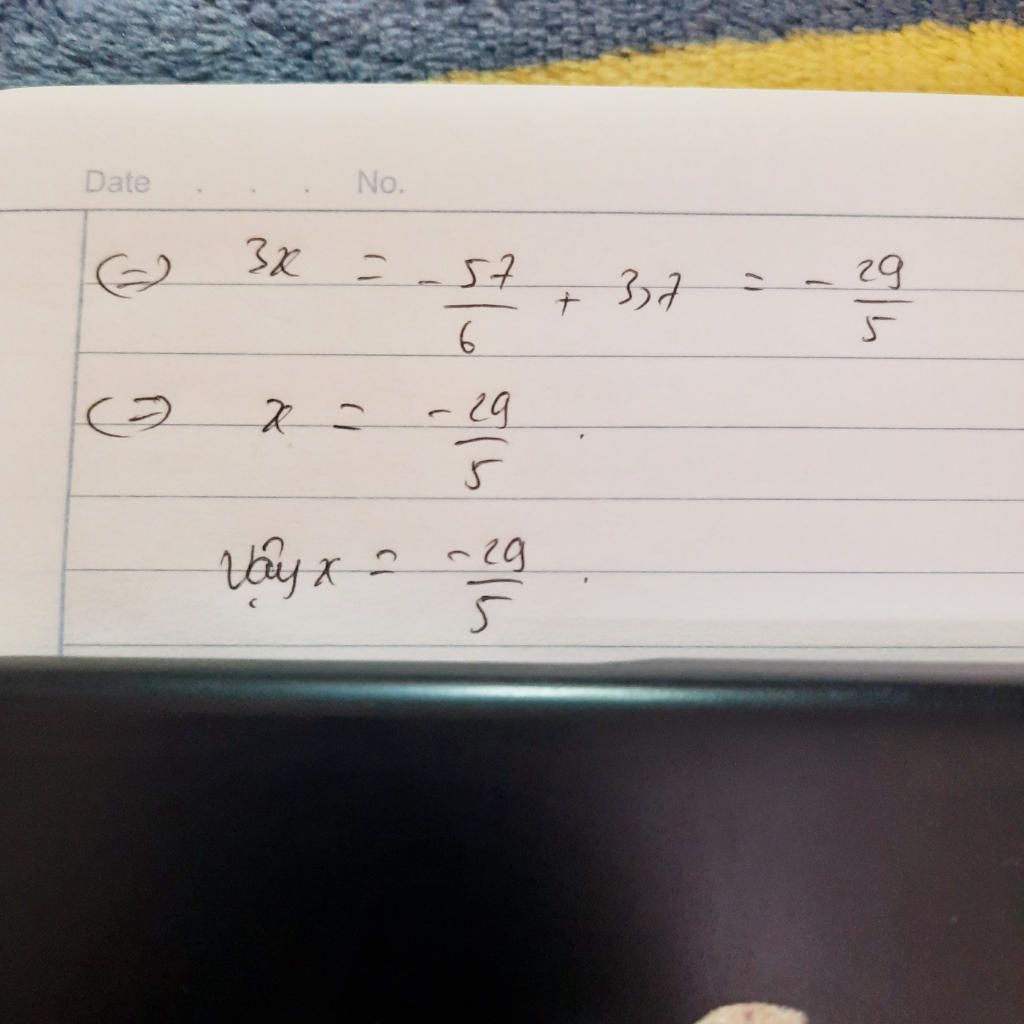 Date . . . No.
(=) 3x = - 57/6 + 3,7 = - 29/5
(=) x = -29/5 .
Vậy x = -29/5 .